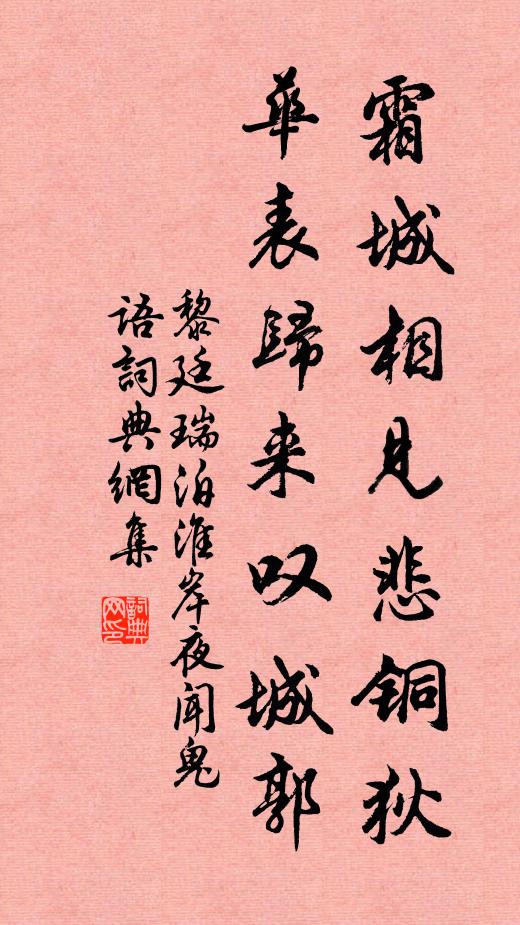 霜城相见悲铜狄
華表歸来叹城郭
黎廷瑞泊淮岸夜闻鬼
语詞典網集
詞典
网印